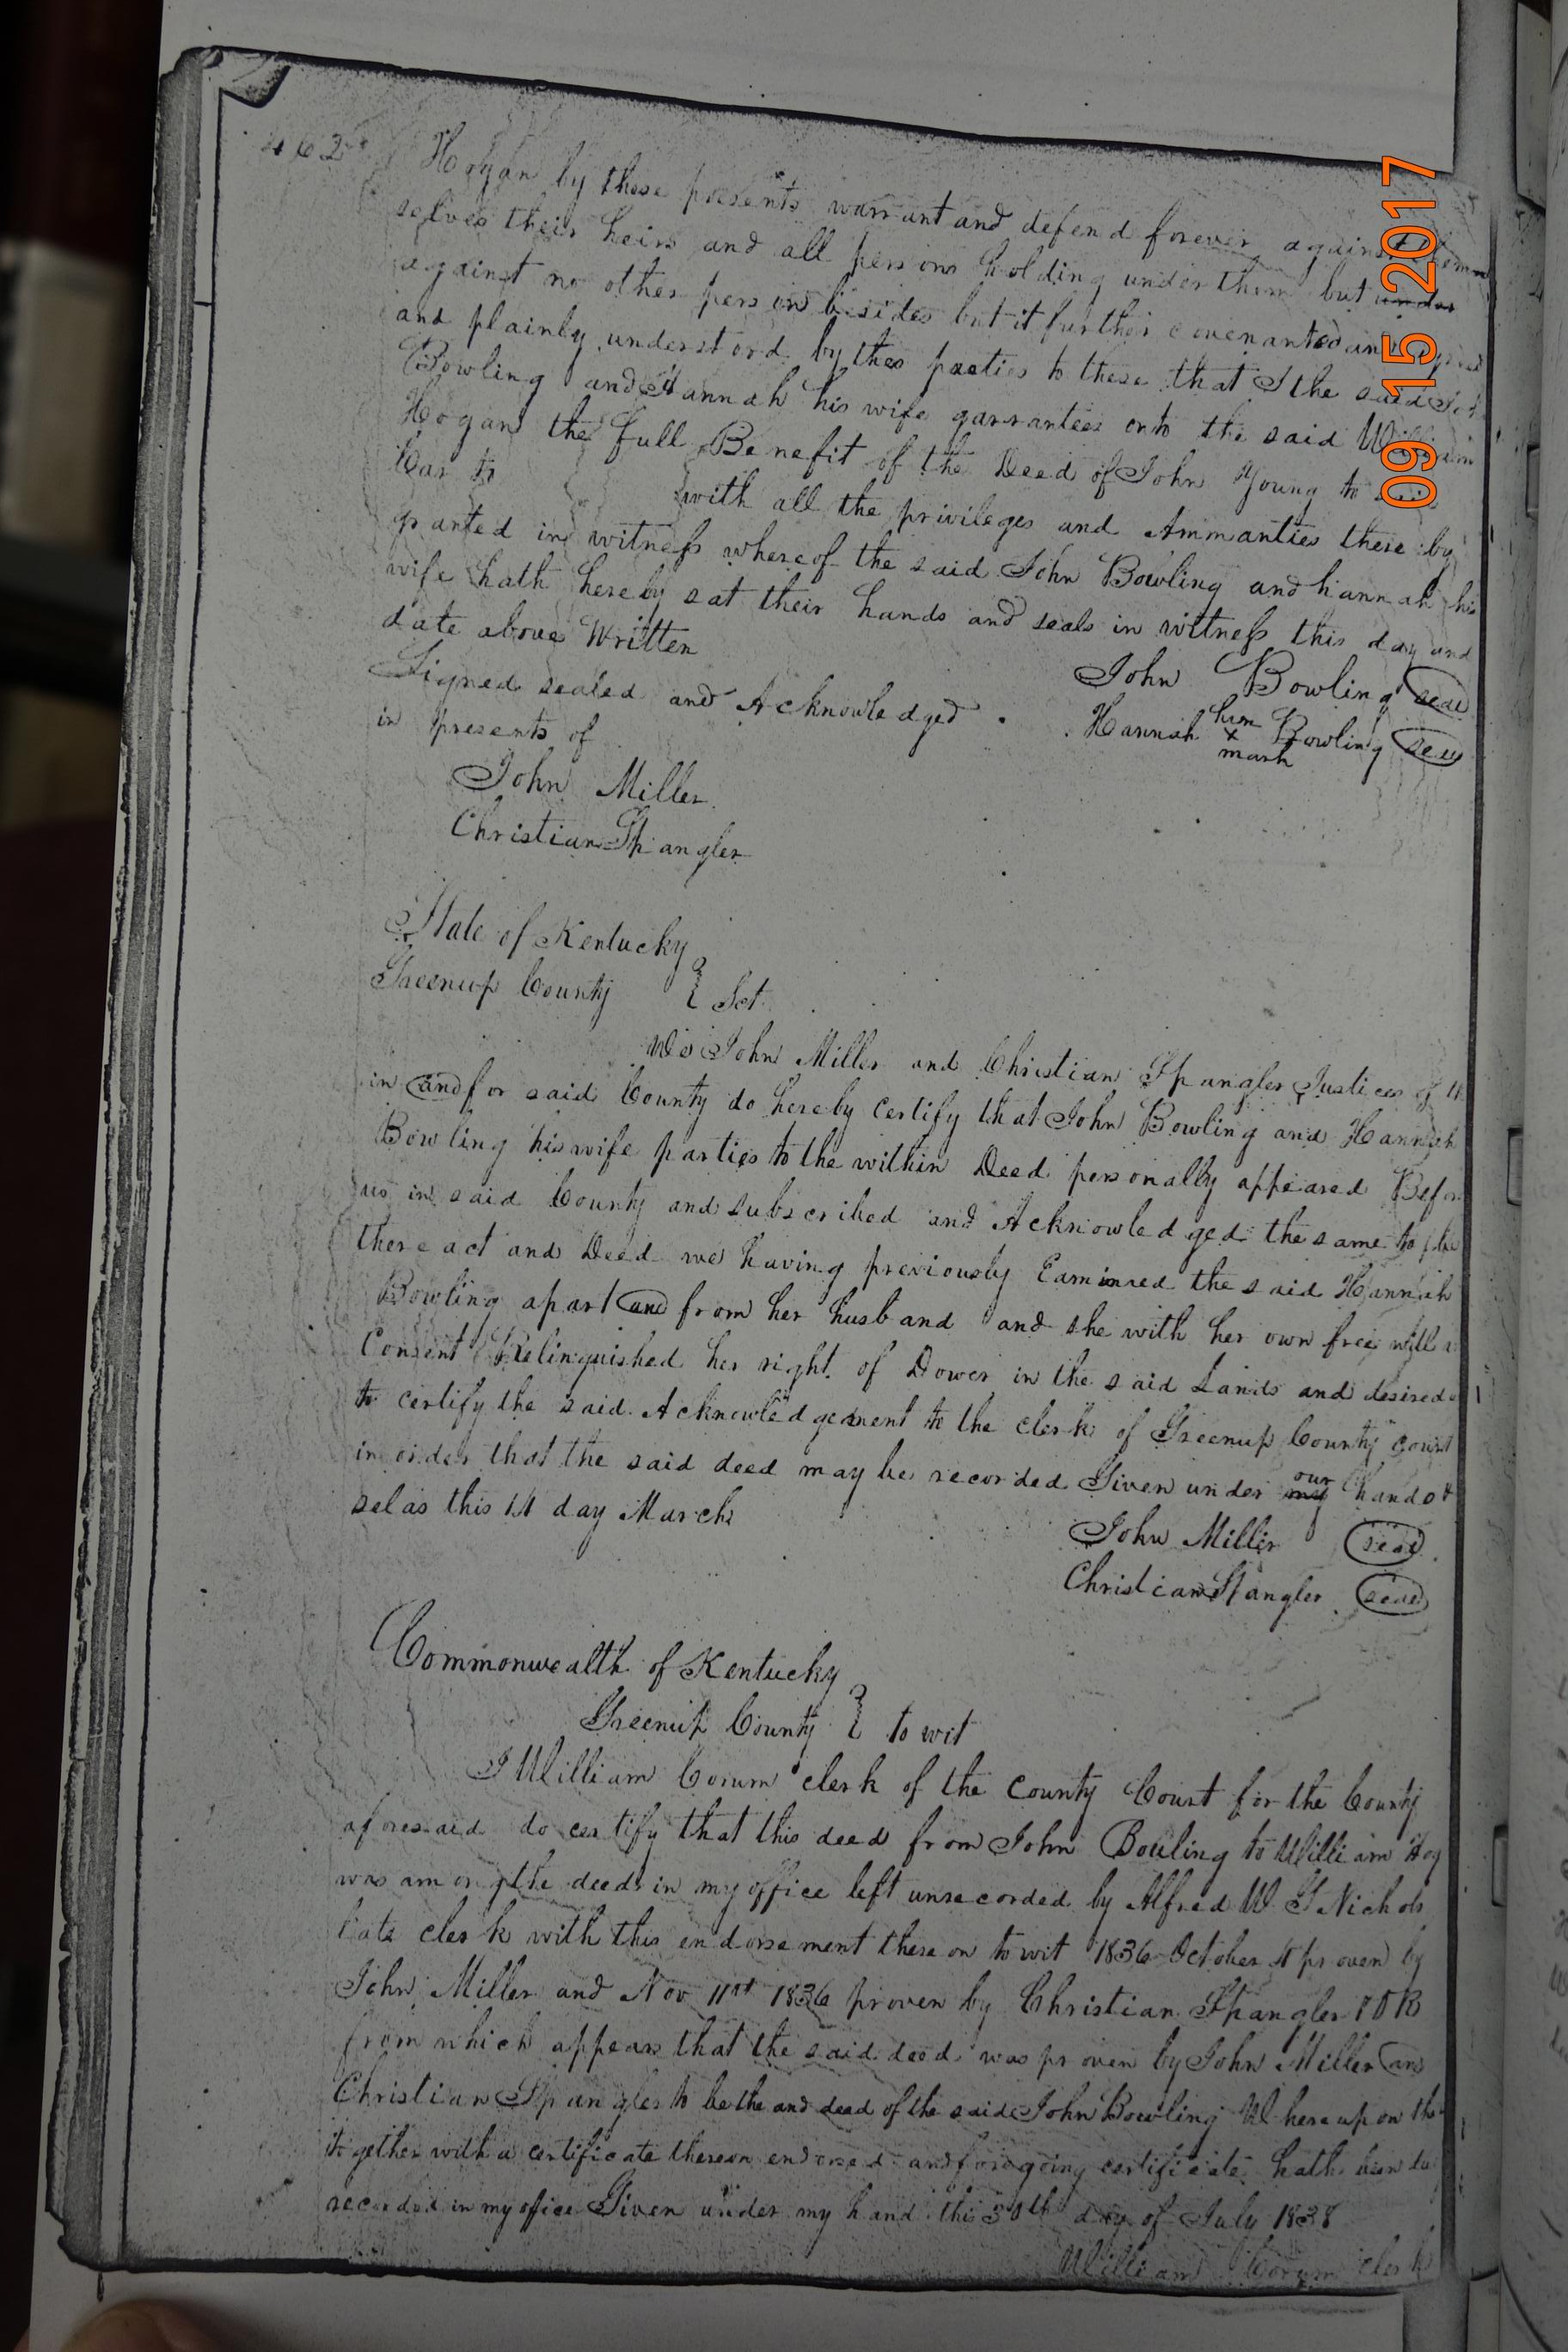 462
Hogan by these presents warrant and defend forever against them
selves their heirs and all persons holding under them but under
against no other person besides but it further covenanted and agreed
and plainly understood by thes parties to these that I the said John
Bowling and Hannah his wife garrantees onto the said William
Hogan the full Benefit of the Deed of John Young to
with all the privileges and Ammanties there by
granted in witness whereof the said John Bowling and hannah his
wife hath hereby sat their hands and seals in witness this day and
date above Written
Signed sealed and Acknowledged
in presents of
John Bowling seal
Hannah her x mark Bowling seal
John Miller
Christian Spangler
State of Kentucky
Greenup County } Sct
We John Miller and Christian Spangler Justices of
in and for said County do hereby certify that John Bowling and Hannah
Bowling his wife parties to the within Deed personally appeared Befor
us in said County and subscribed and Acknowledged the same to be
there act and Deed we having previously Eaminred the said Hannah
Bowling apart and from her husband and she with her own free will
Consent Relinquished her right of Dower in the said Lands and desired
to certify the said Acknowledgement to the clerk of Greenup County Court
in order that the said deed may be recorded Given under my our hands
selas this 14 day March
John Miller seal
Christian Spangler seal
Commonwealth of Kentucky
Greenup County } to wit
I William Corum clerk of the County Court for the County
aforesaid do certify that this deed from John Bouling to William Hog
was among the deeds in my office left unrecorded by Alfred W. G Nichols
late clerk with this endorsement there on to wit 1836 October 4 proven by
John Miller and Nov 11st 1836 proven by Christian Spangler
from which appears that the said deed was proven by John Miller and
Christian Spangler to be the and dead of the said John Bowling Whereupon the
together with a certificate thereon endorsed and foregoing certificate hath been du
recorded in my office Given under my hand this 30th day of July 1838
William Corum clerk
09 15 2017